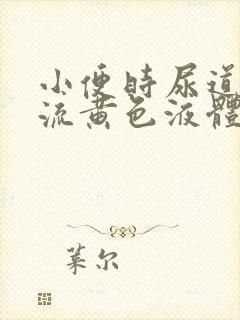 小便時尿道
流黄色液體
葉尔